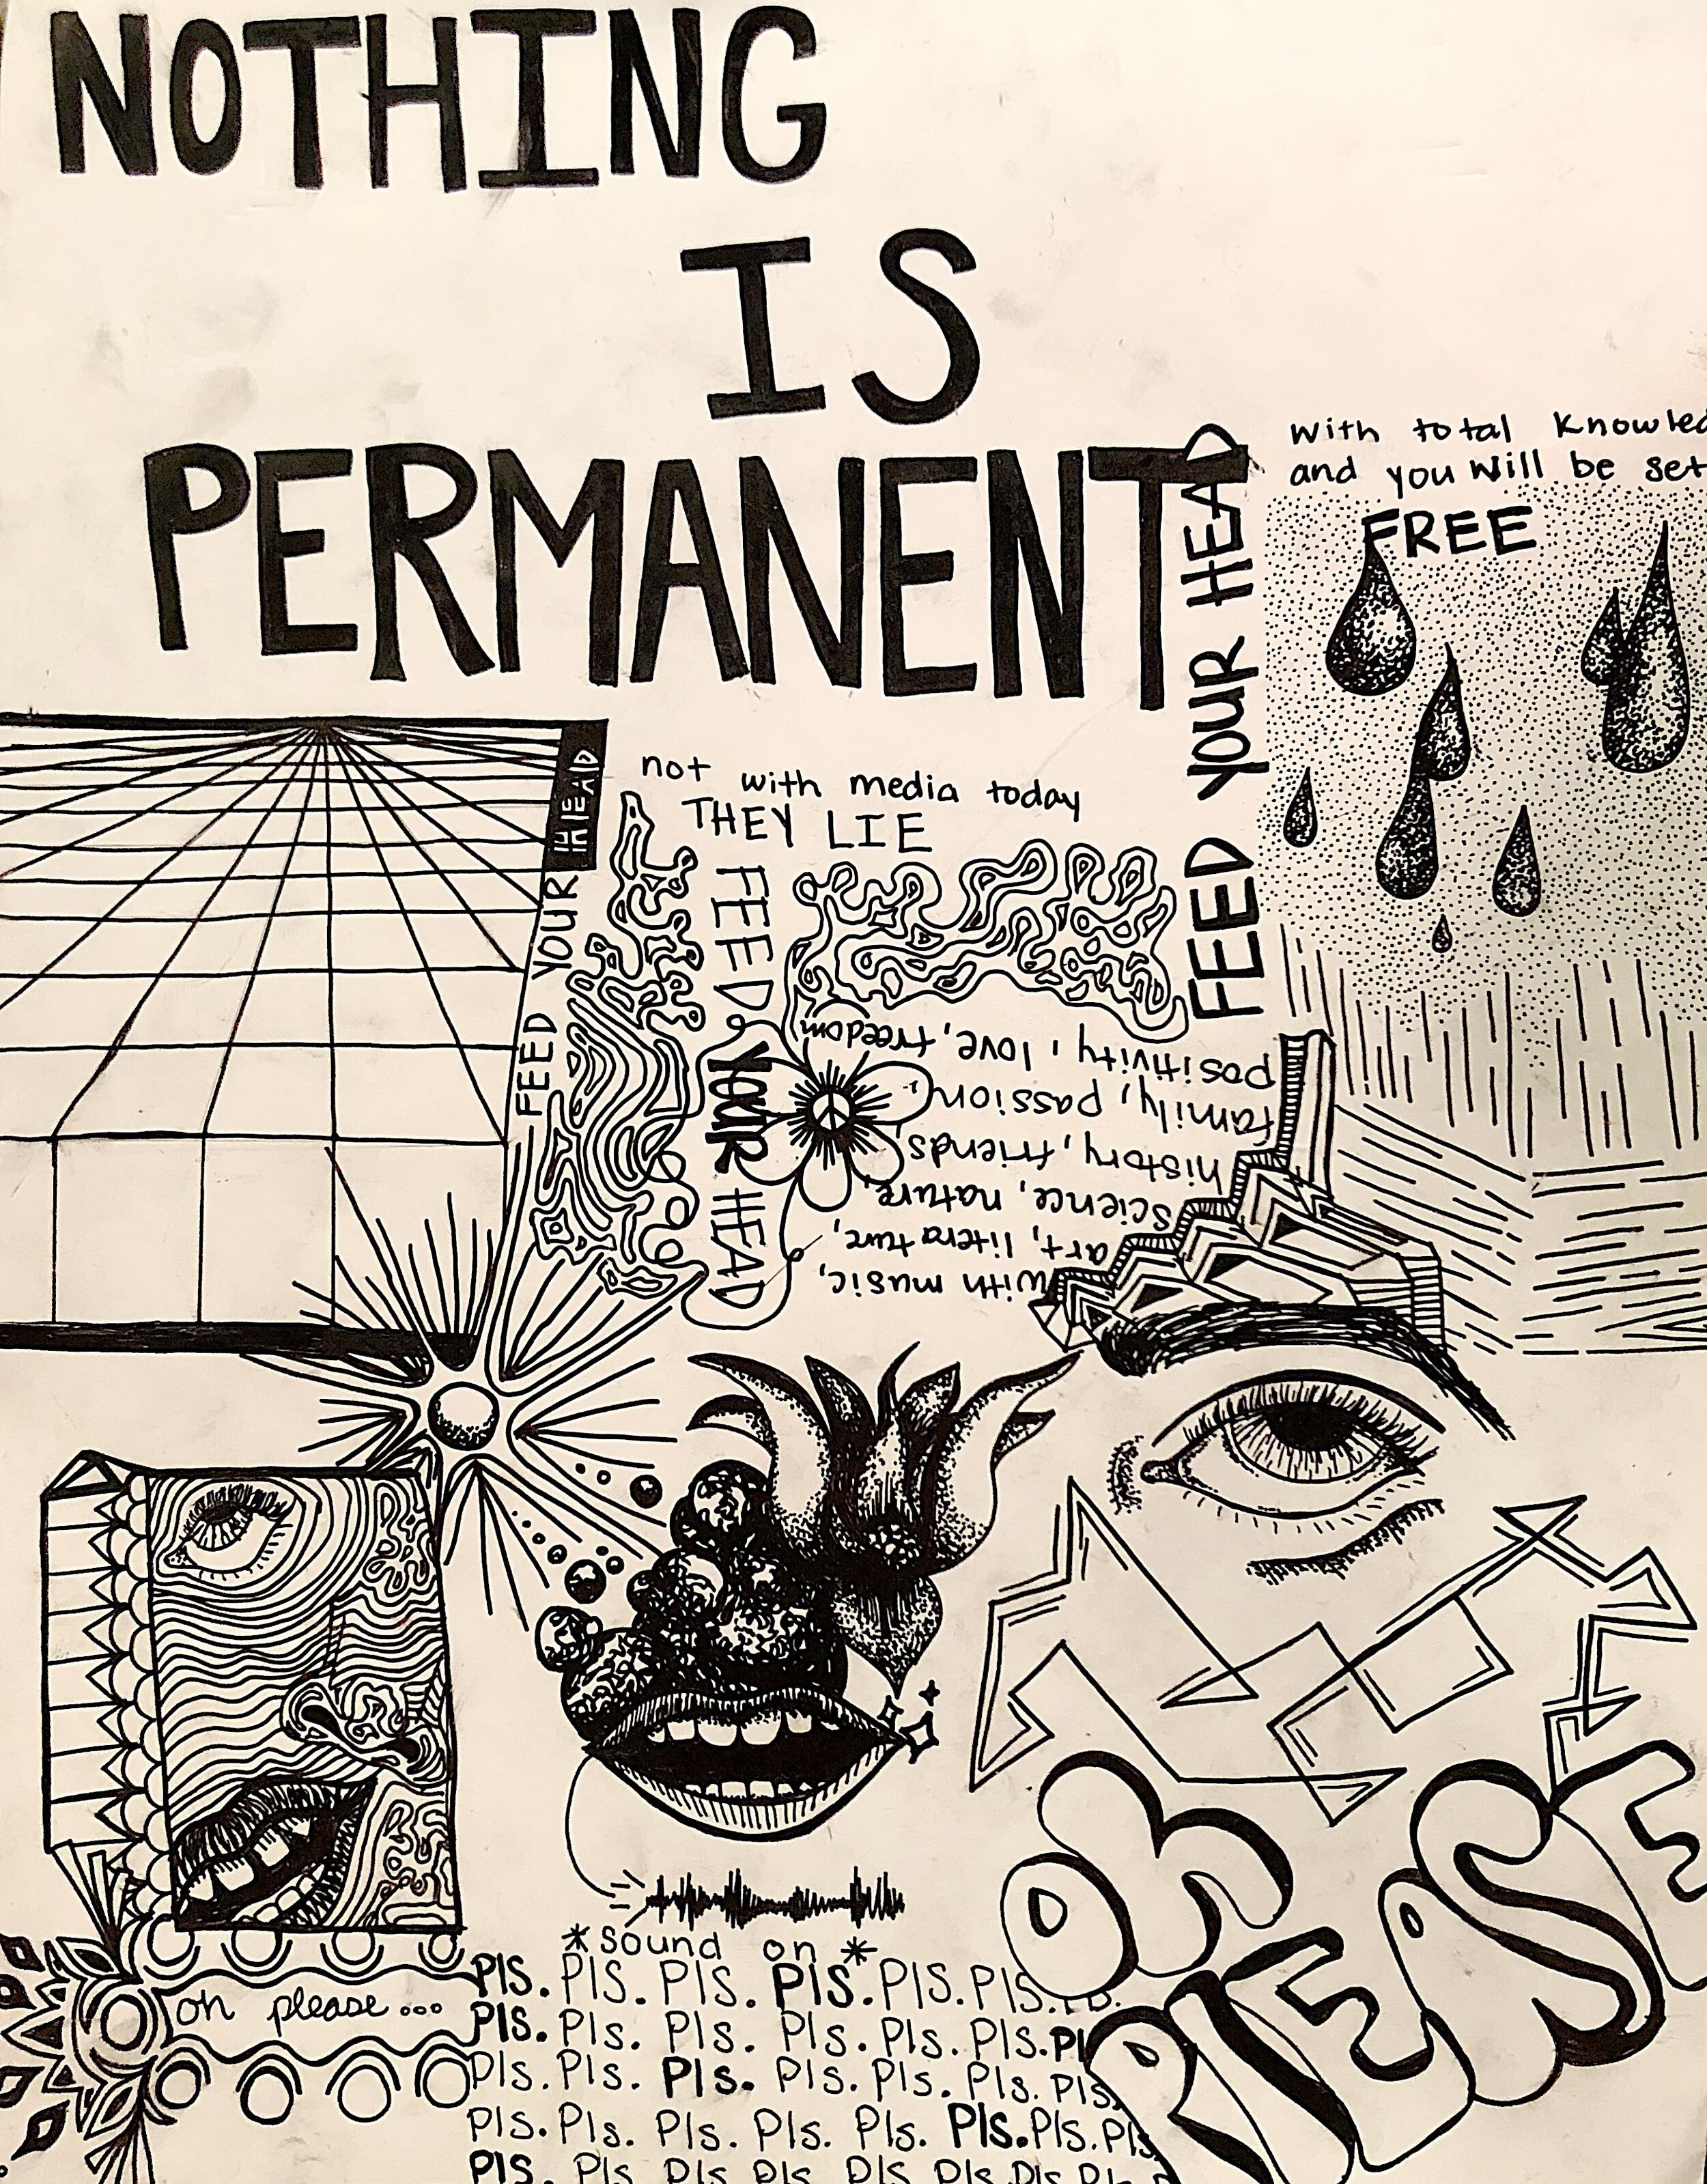 NOTHING
IS
PERMANENT
With total Knowled
and you Will be set
FREE
FEED YOUR HEAD
not with media today
THEY LIE
FEED YOUR HEAD
FEED YOUR HEAD
With music,
art, literature,
science, nature,
history, friends,
family, passion,
positivity, love, freedom
*Sound on*
Pls. Pls. Pls. Pls. Pls. Pls.
Pls. Pls. Pls. Pls. Pls. Pls. Pl
Pls. Pls. Pls. Pls. Pls. Pls. Pls
Pls. Pls. Pls. Pls. Pls. Pls. Pls. Pls
Pls. Pls Pls Pls Pls Pls Pls Pl
oh please...
OH
PLEASE